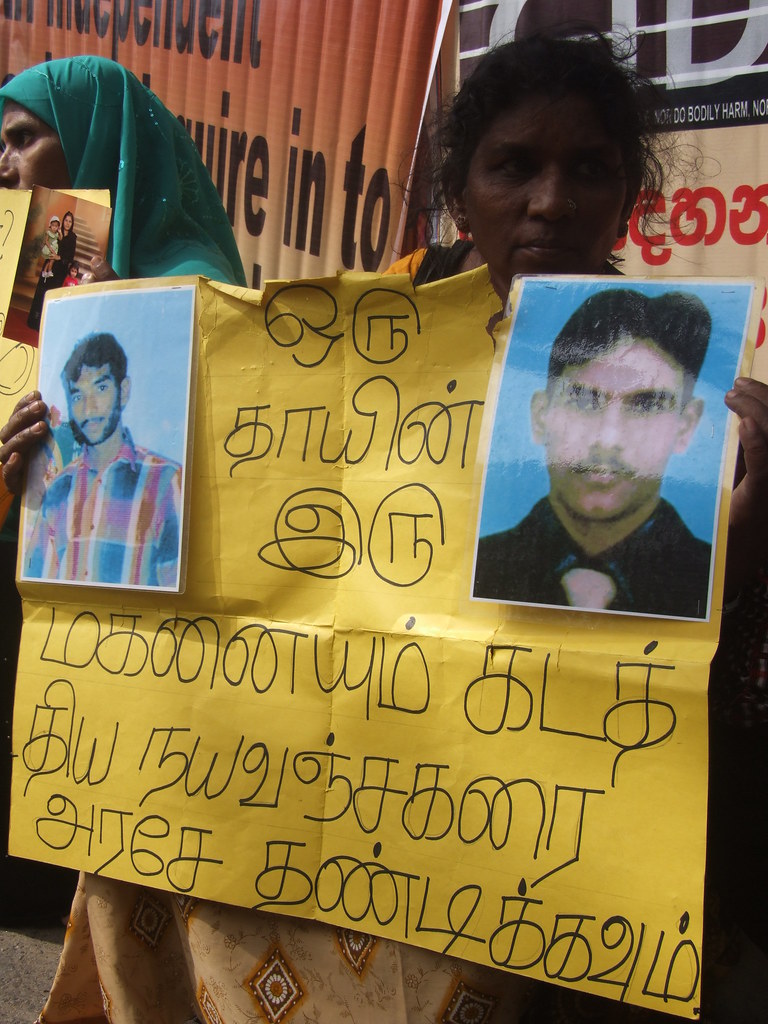 independent
uire in to
NOR DO BODILY HARM, NOR
ஒரு
தாயின்
இரு
மகனையும் கடத்
திய நயவஞ்சகரை
அரசே தண்டிக்கவும்